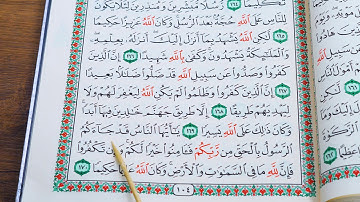 تَكْلِيمًا ١٦٤ رُّسُلًا مُّبَشِّرِينَ وَمُنذِرِينَ لِئَلَّا يَكُونَ
لِلنَّاسِ عَلَى اللَّهِ حُجَّةٌ بَعْدَ الرُّسُلِ وَكَانَ اللَّهُ عَزِيزًا حَكِيمًا
١٦٥ لَّٰكِنِ اللَّهُ يَشْهَدُ بِمَا أَنزَلَ إِلَيْكَ أَنزَلَهُ بِعِلْمِهِ
وَالْمَلَائِكَةُ يَشْهَدُونَ وَكَفَىٰ بِاللَّهِ شَهِيدًا ١٦٦ إِنَّ الَّذِينَ
كَفَرُوا وَصَدُّوا عَن سَبِيلِ اللَّهِ قَدْ ضَلُّوا ضَلَالًا بَعِيدًا
١٦٧ إِنَّ الَّذِينَ كَفَرُوا وَظَلَمُوا لَمْ يَكُنِ اللَّهُ لِيَغْفِرَ لَهُمْ وَلَا
لِيَهْدِيَهُمْ طَرِيقًا ١٦٨ إِلَّا طَرِيقَ جَهَنَّمَ خَالِدِينَ فِيهَا أَبَدًا
وَكَانَ ذَٰلِكَ عَلَى اللَّهِ يَسِيرًا ١٦٩ يَا أَيُّهَا النَّاسُ قَدْ جَاءَكُمُ
الرَّسُولُ بِالْحَقِّ مِن رَّبِّكُمْ فَآمِنُوا خَيْرًا لَّكُمْ وَإِن تَكْفُرُوا
فَإِنَّ لِلَّهِ مَا فِي السَّمَاوَاتِ وَالْأَرْضِ وَكَانَ اللَّهُ عَلِيمًا حَكِيمًا ١٧٠
١٠٤